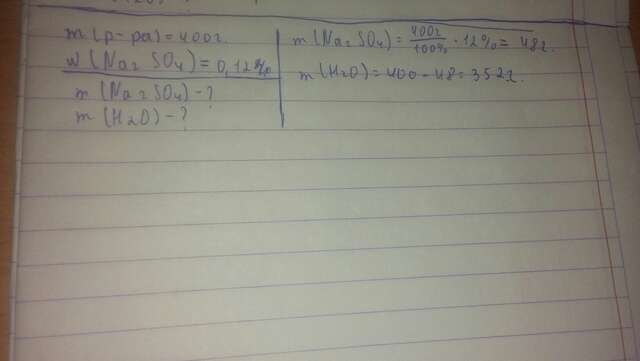 m (р-ра) = 400г.
w (Na2SO4) = 0,12%
m (Na2SO4) - ?
m (H2O) - ?
m (Na2SO4) = 400г/100% · 12% = 48г.
m (H2O) = 400 - 48 = 352г.